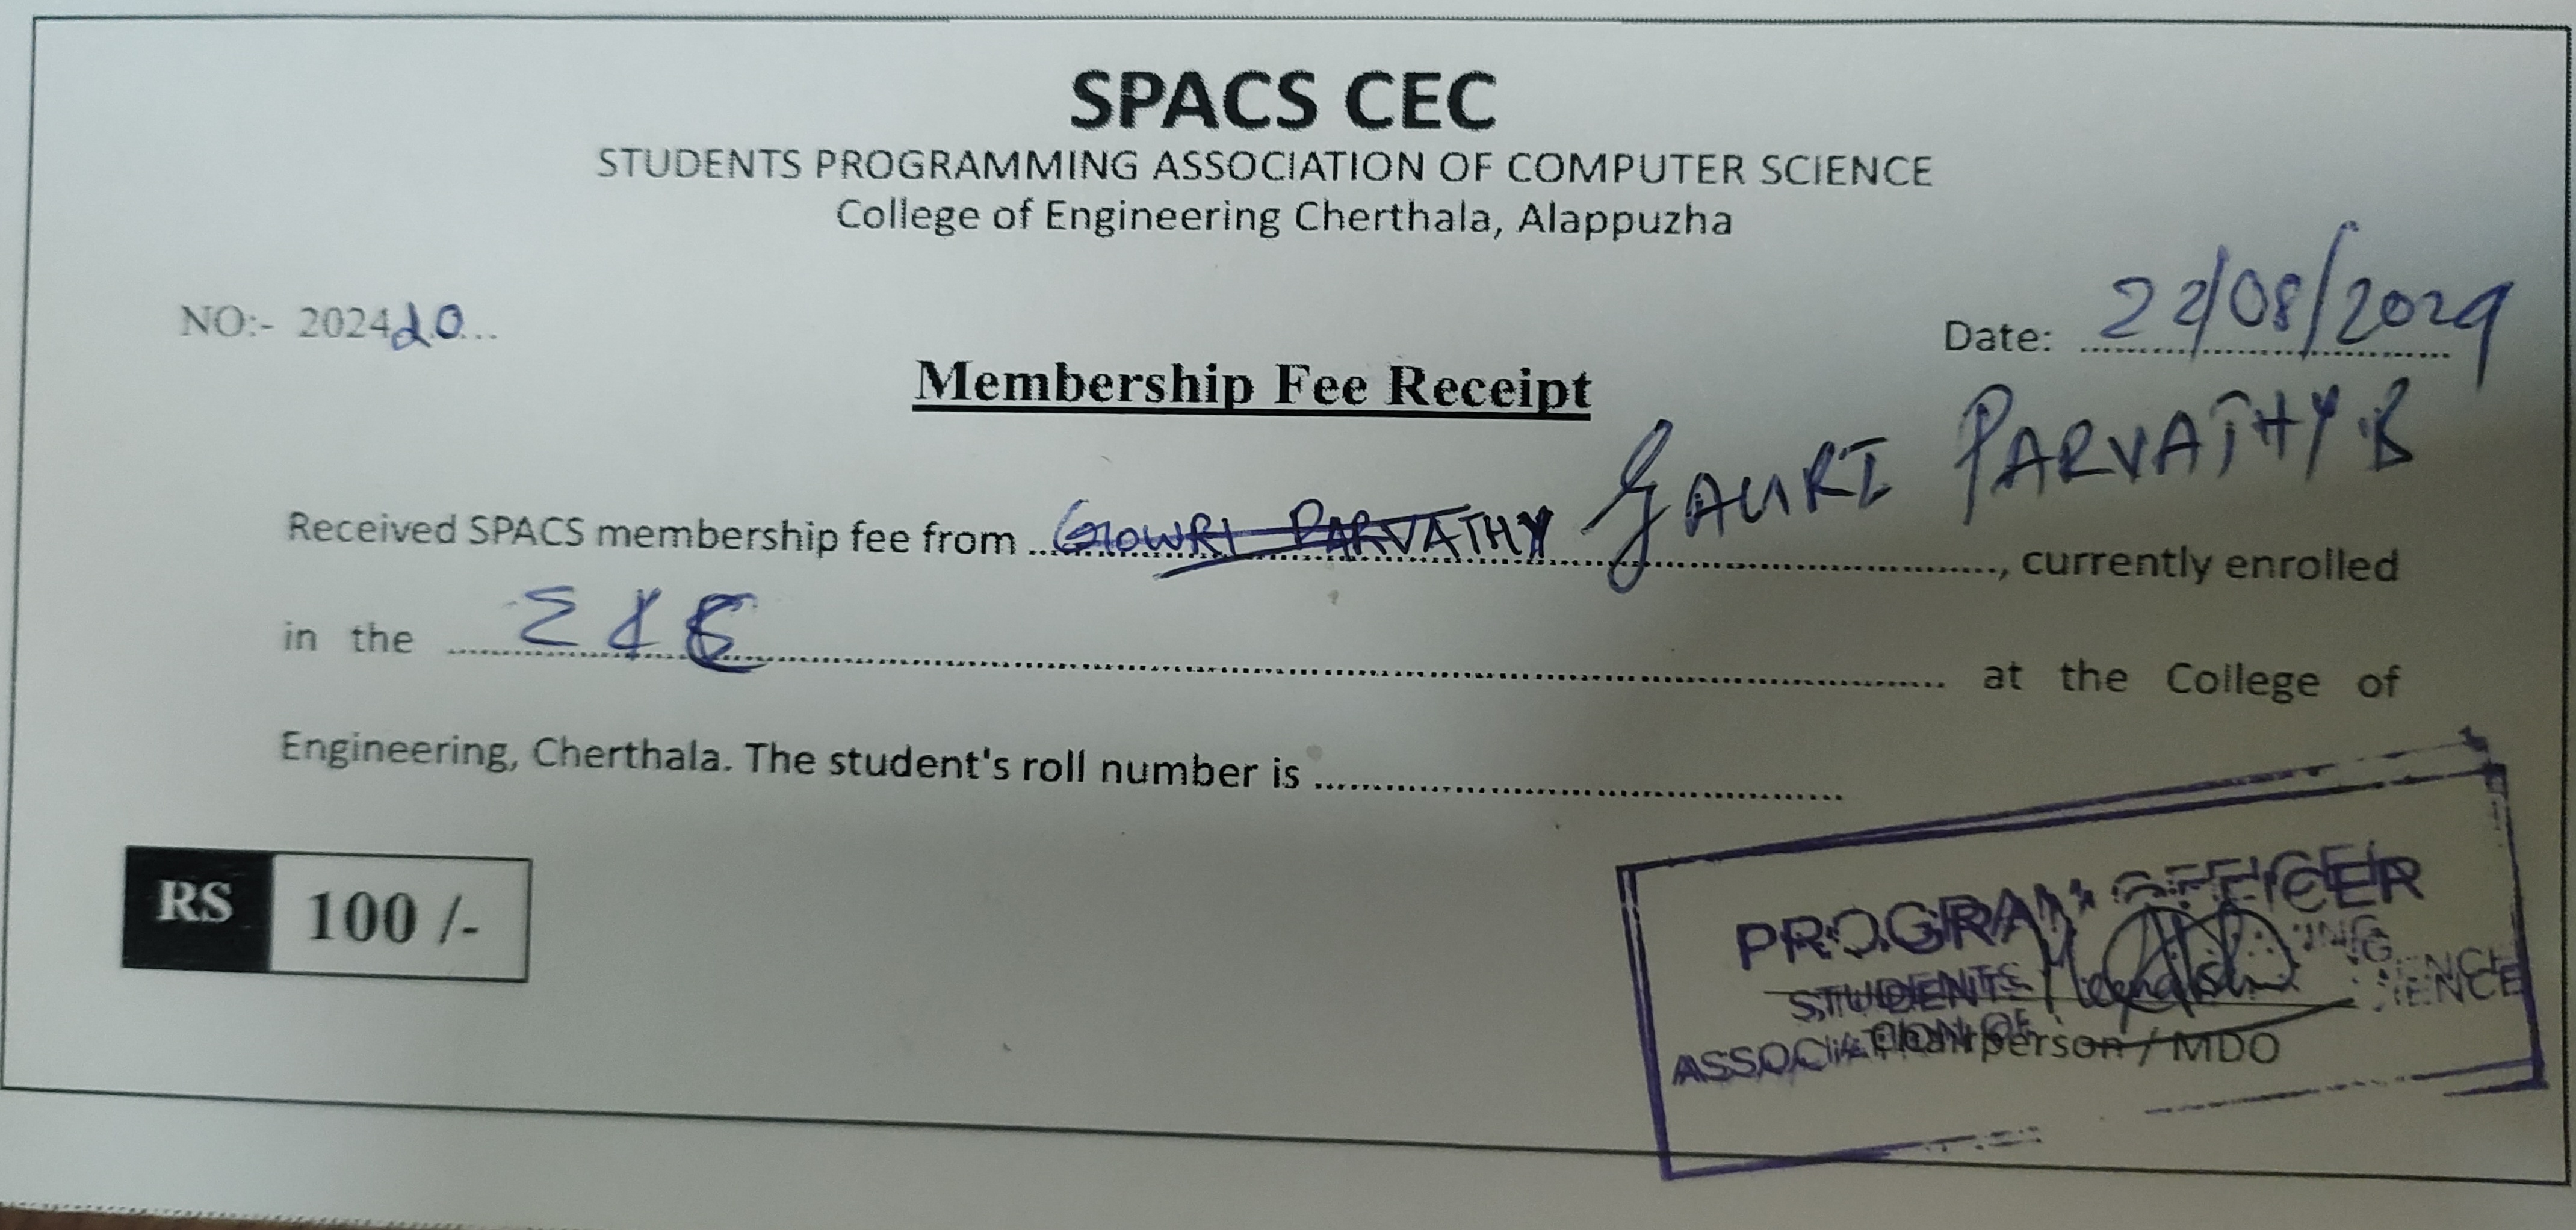 SPACS CEC
STUDENTS PROGRAMMING ASSOCIATION OF COMPUTER SCIENCE
College of Engineering Cherthala, Alappuzha
NO:- 202420...
Date: 22/08/2024
Membership Fee Receipt
Received SPACS membership fee from GOWRI PARVATHY GAURI PARVATHY.B, currently enrolled
in the at the College of
Engineering, Cherthala. The student's roll number is
RS 100 /-
PROGRAM OFFICER
STUDENTS
ASSOCIATION OF SCIENCE
Chairperson / MDO